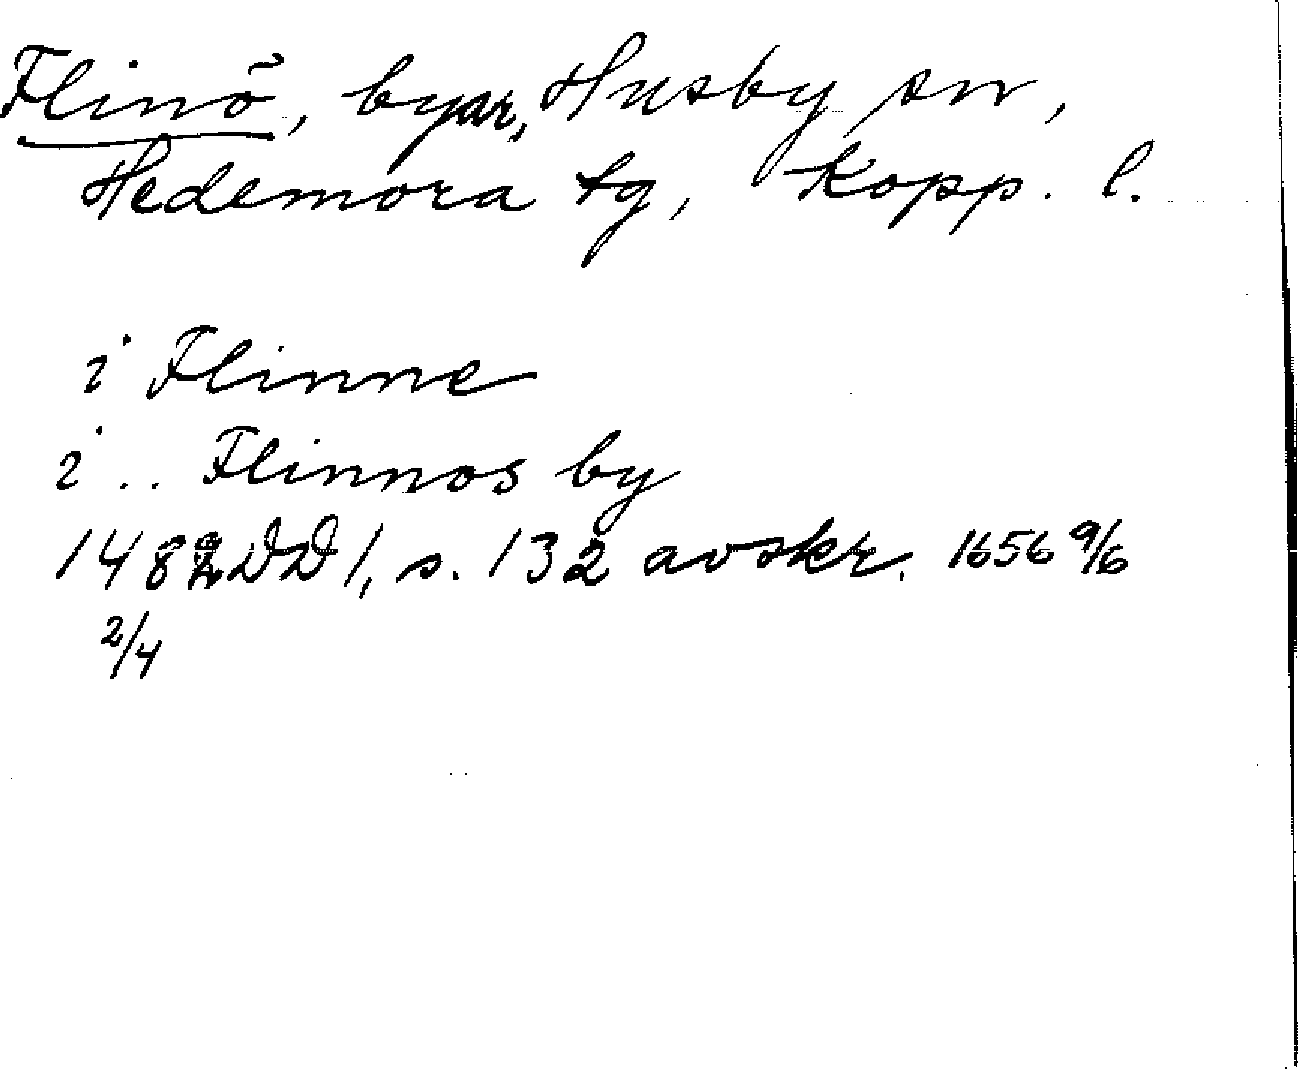 Flinö, byar, Husby sn,
Hedemora tg, Kopp. l.
i Flinne
i .. Flinnos by
1482 DD 1, s. 132 avskr. 1656 9/6
2/4